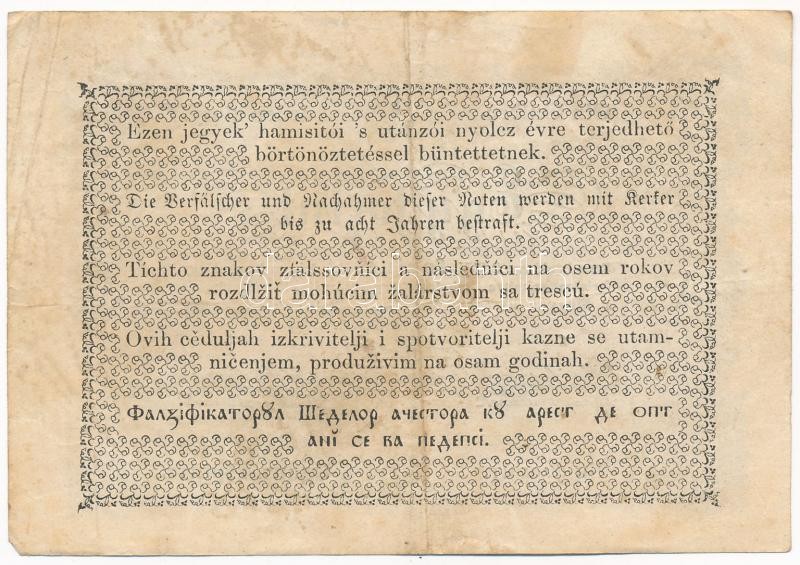 Ezen jegyek’ hamisitói ’s utánzói nyolcz évre terjedhető
börtönöztetéssel büntettetnek.
Die Verfälscher und Nachahmer dieser Noten werden mit Kerker
bis zu acht Jahren bestraft.
Tichto znakov zfalssovňíci a následňíci na osem rokov
rozdlžiť mohúcim žalárstvom sa trescú.
Ovih cěduljah izkrivitelji i spotvoritelji kazne se utam-
ničenjem, produživim na osam godinah.
Фалꙁіфікаторꙋл Шеделор ачестора кꙋ арест де опт
анĭ се ва педепсі.
darabanth